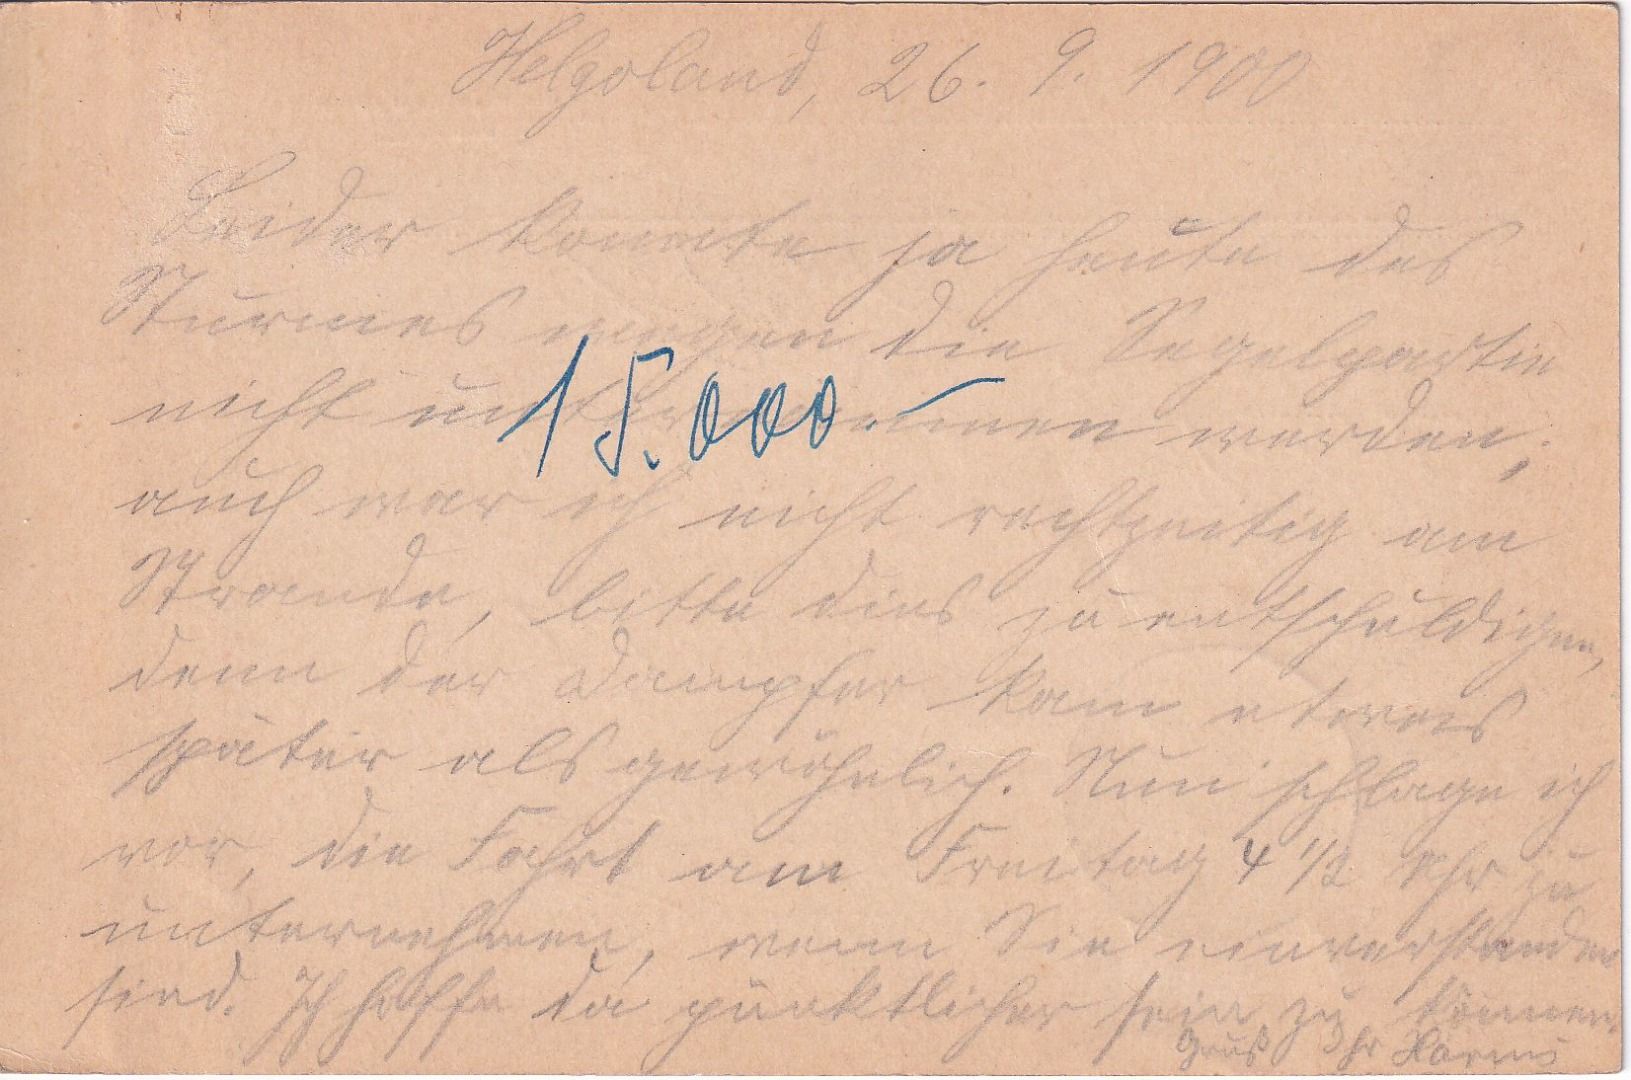 Helgoland, 26. 9. 1900
Leider konnte ja heute des
Sturmes wegen die Segelpartie
nicht unternommen werden;
15.000.–
auch war ich nicht rechtzeitig am
Strande, bitte dies zu entschuldigen,
denn der Dampfer kam etwas
später als gewöhnlich. Nun schlage ich
vor, die Fahrt am Freitag 4 1/2 Uhr zu
unternehmen, wenn Sie einverstanden
sind. Ich hoffe da pünktlicher sein zu können.
Gruß Ihr Harms